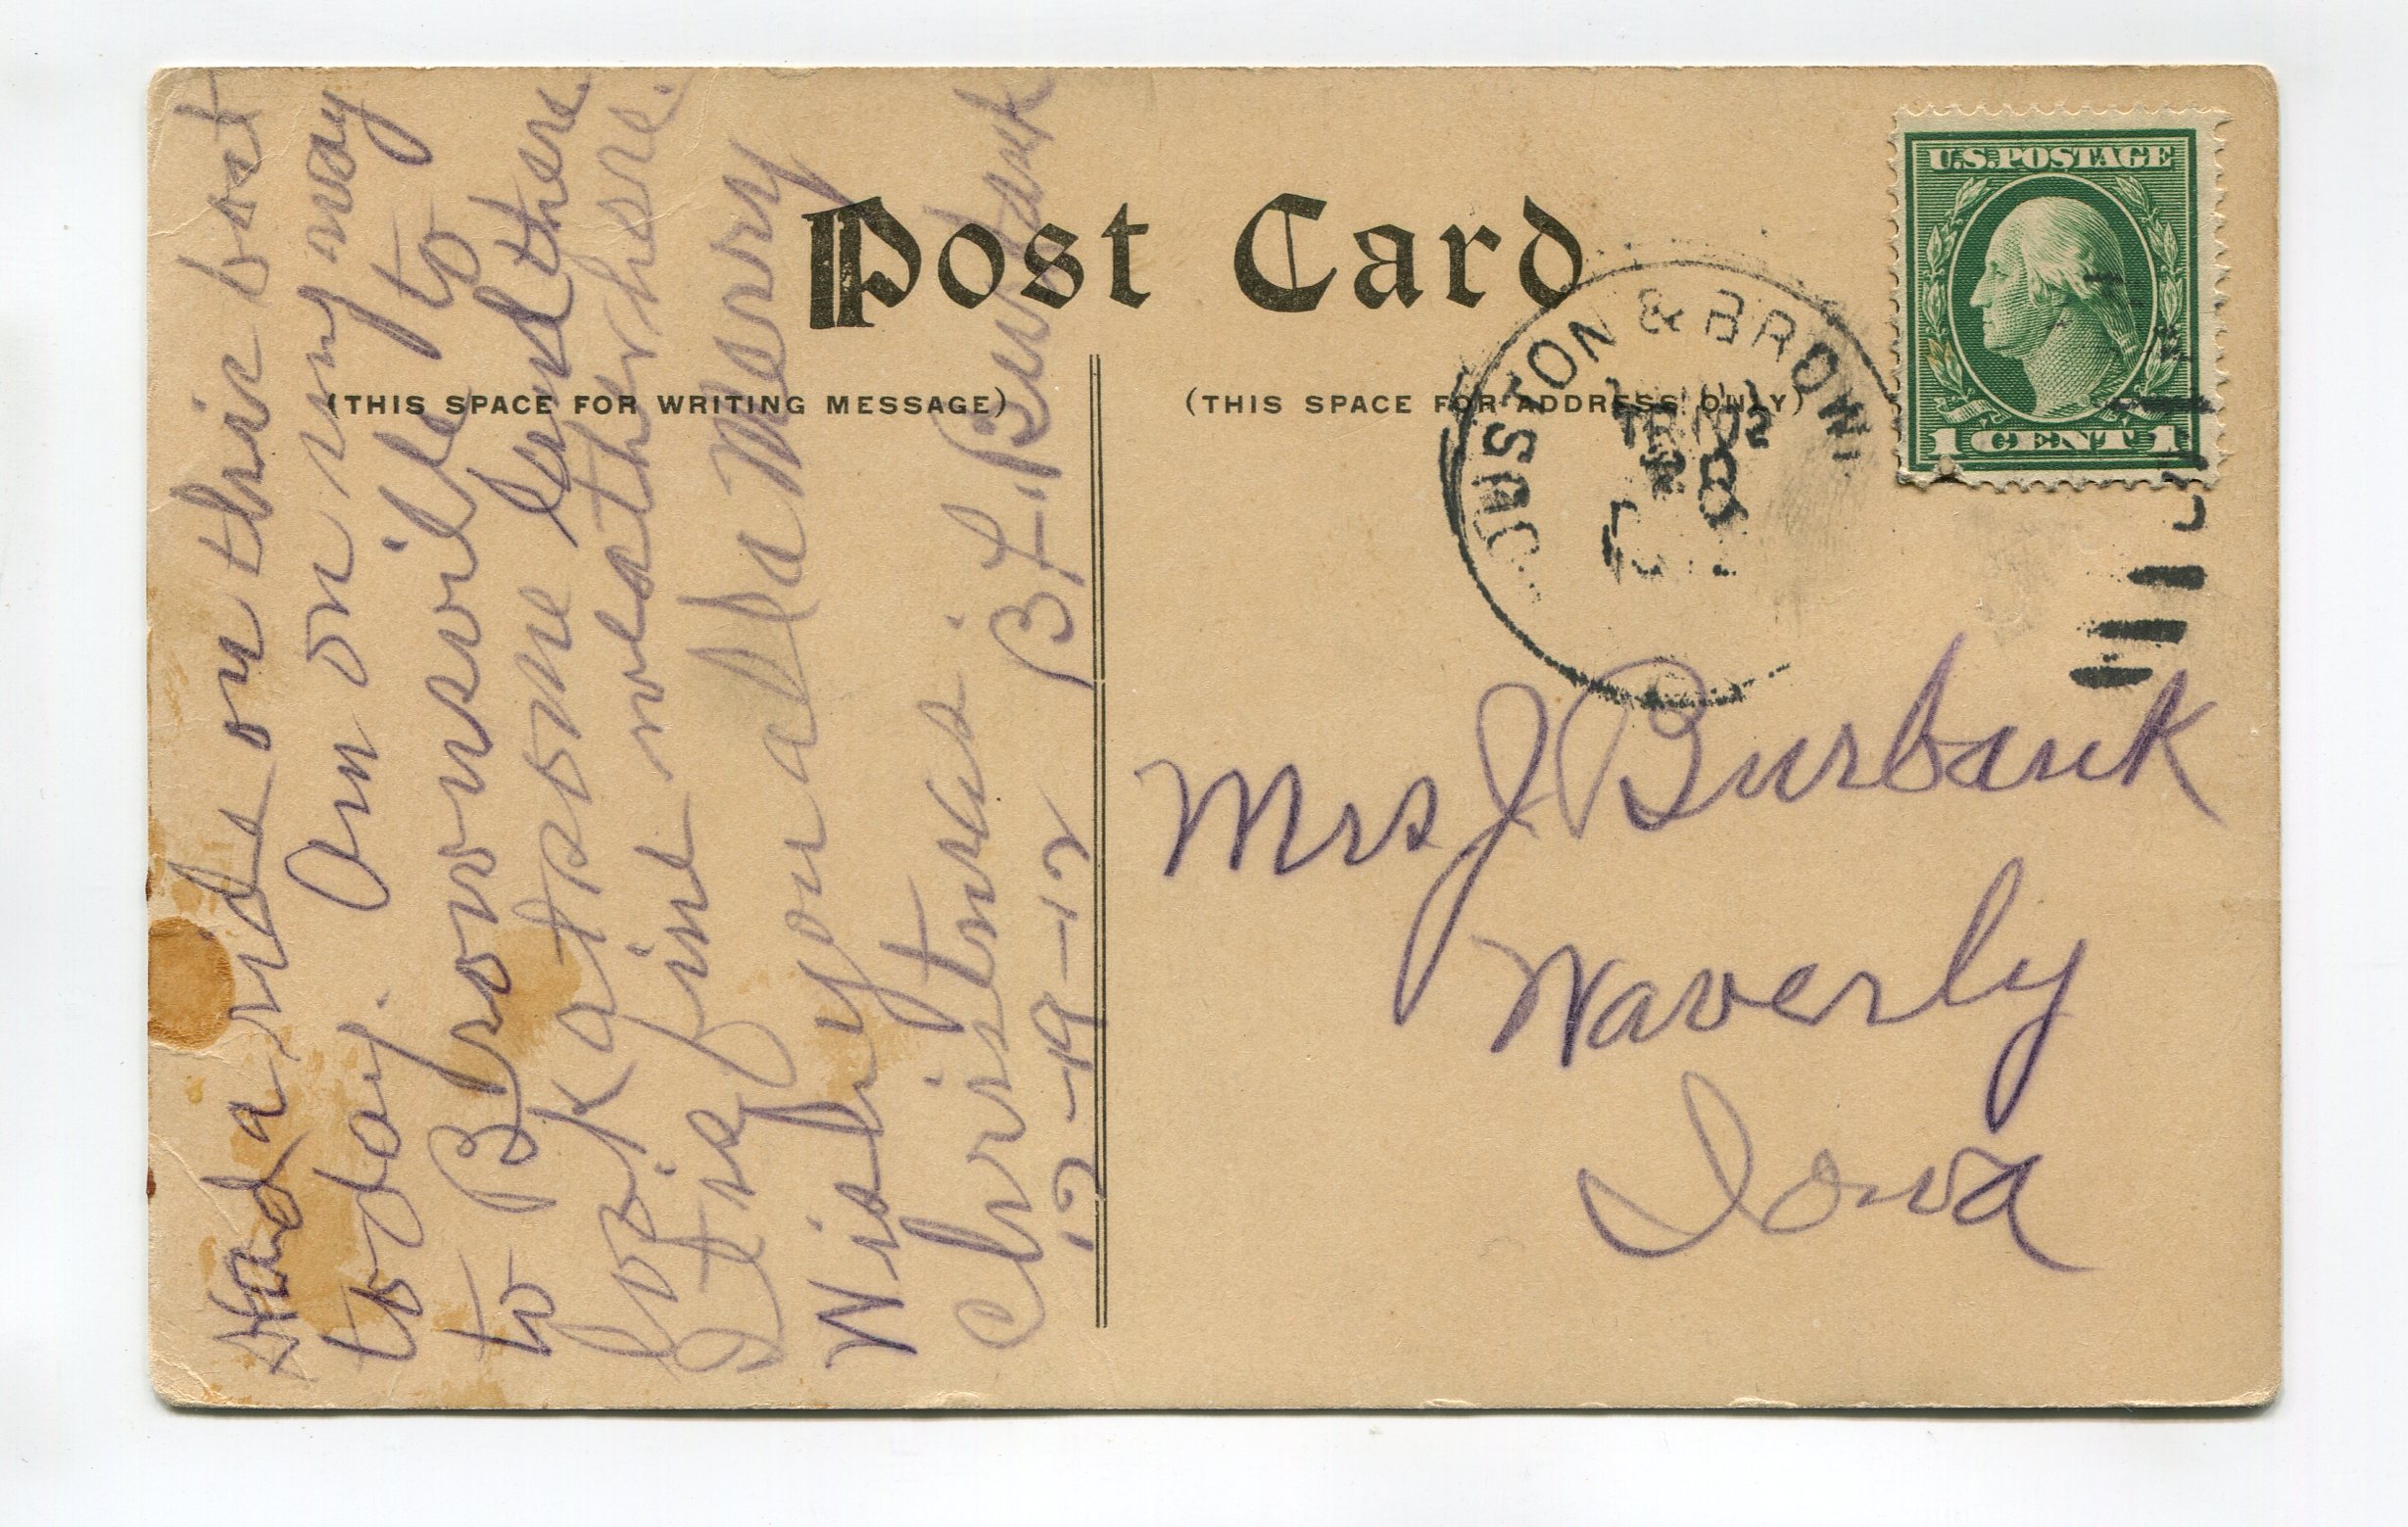 Post Card
(THIS SPACE FOR WRITING MESSAGE)
(THIS SPACE FOR ADDRESS ONLY)
U.S. POSTAGE
1 CENT 1
& BROW
Had a ride on this boat
today. Am on my way
to Brownsville to
look at some land there
It is fine weather here.
Wish you all a Merry
Christmas.
B F Burbank
12-19-12
Mrs J Burbank
Waverly
Iowa